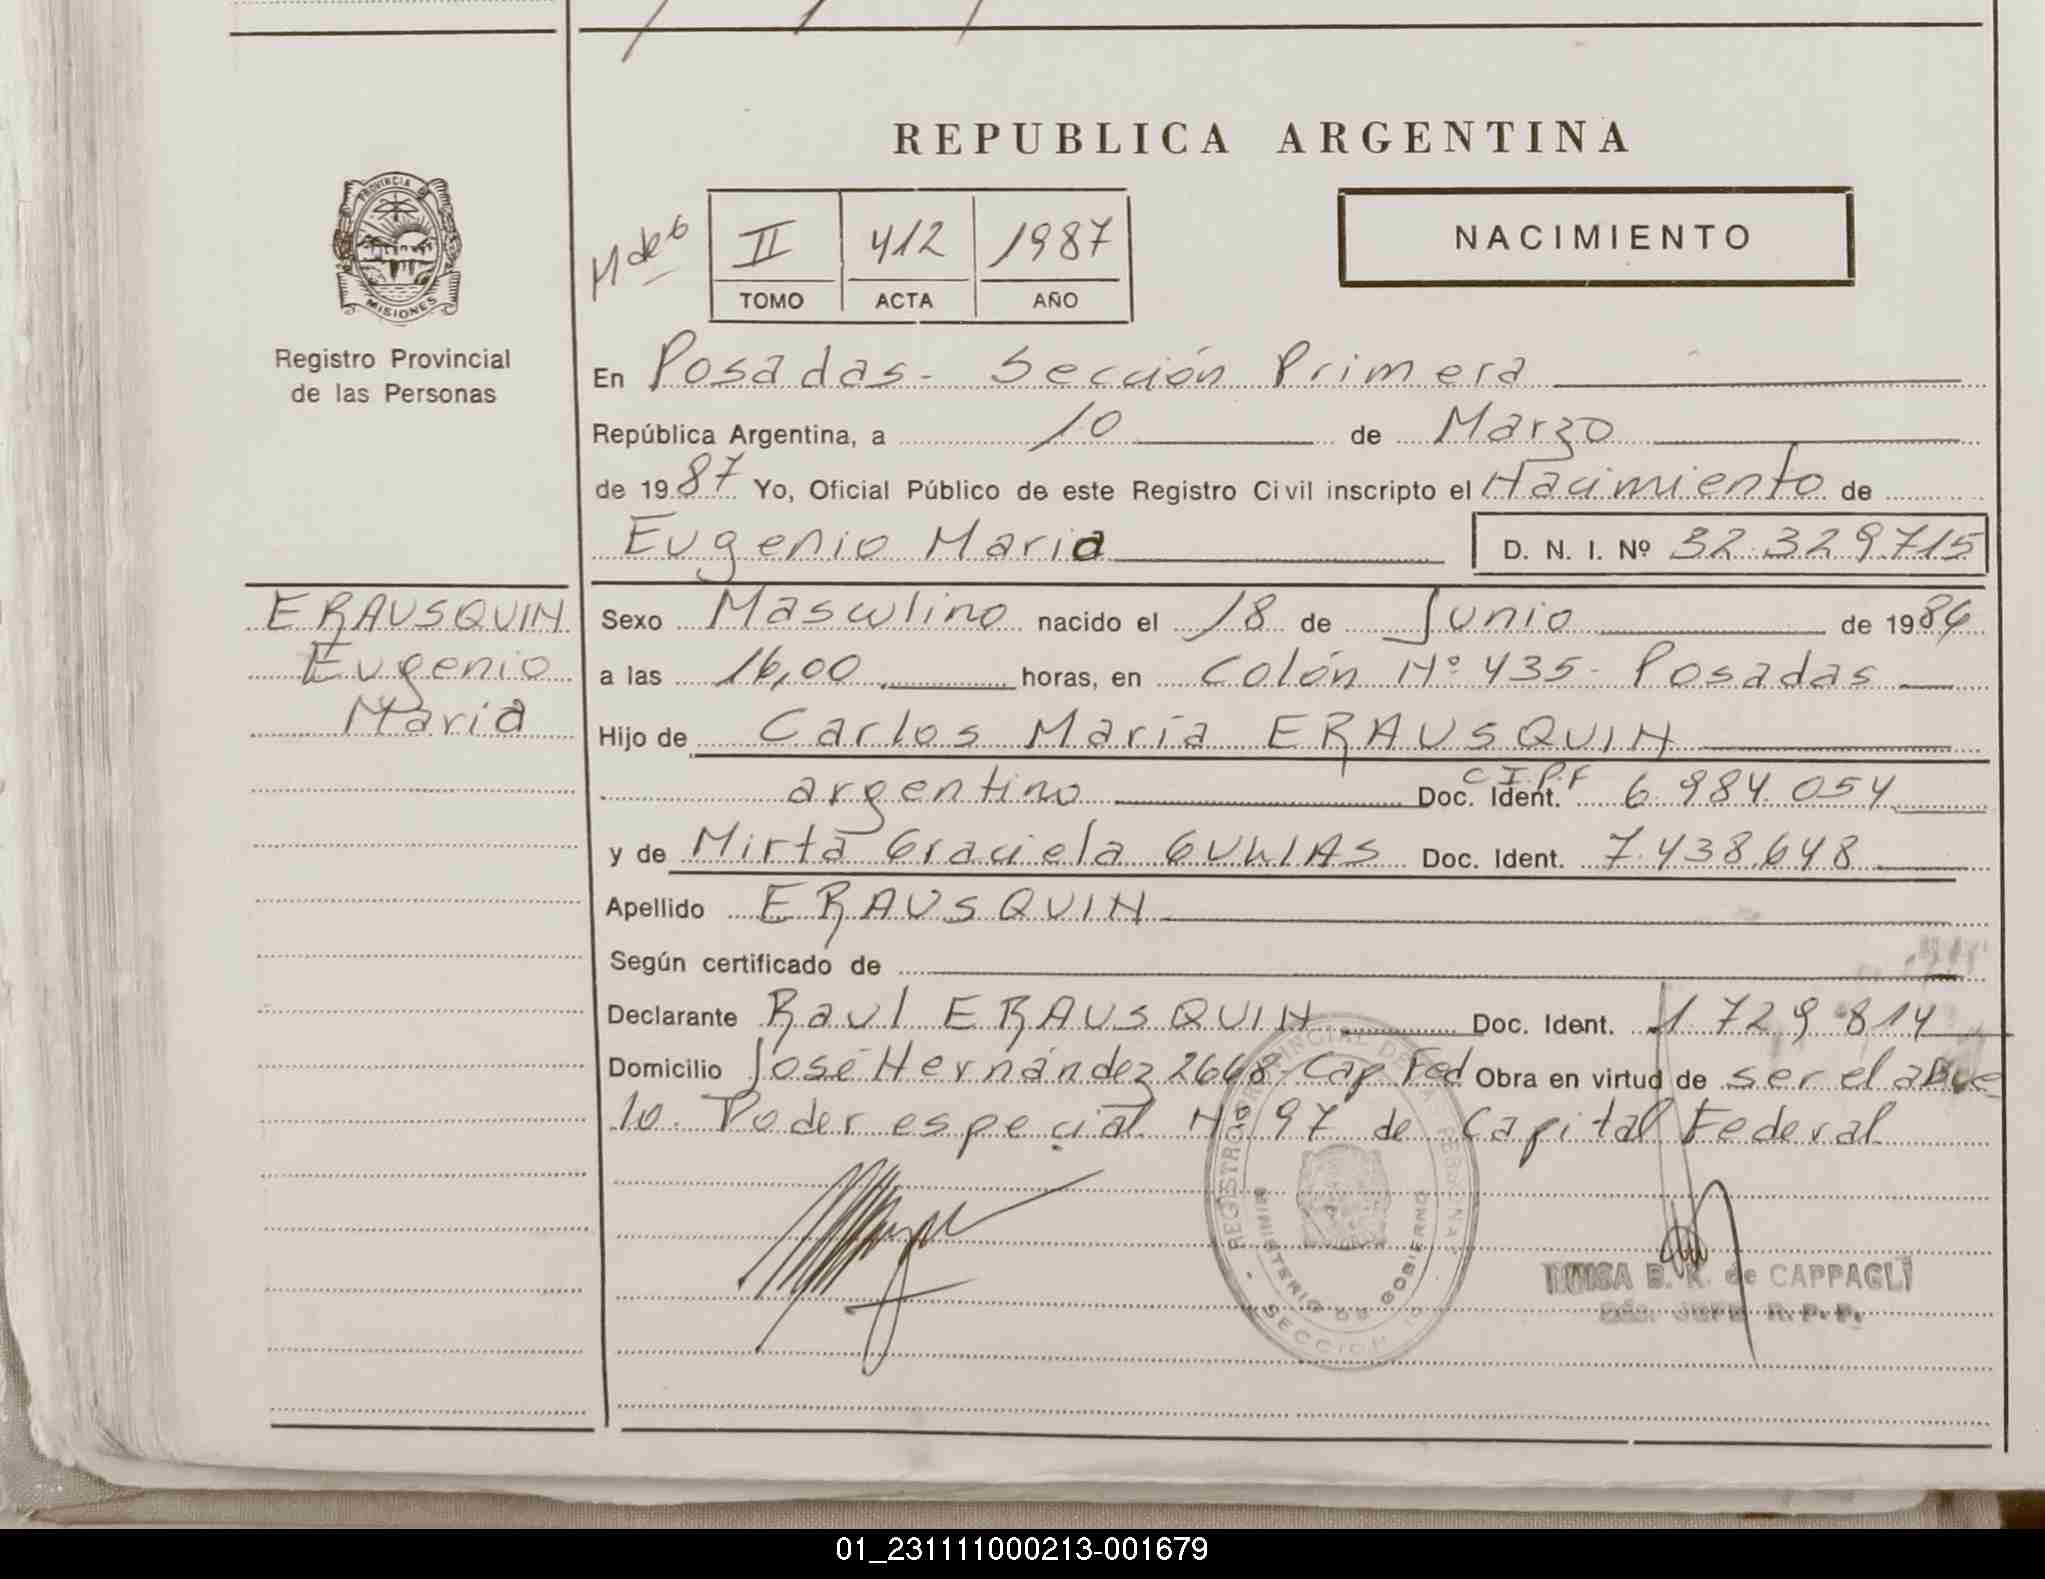 REPUBLICA ARGENTINA
NACIMIENTO
II 412 1987
TOMO ACTA AÑO
PROVINCIA DE
MISIONES
Registro Provincial
de las Personas
En Posadas - Sección Primera
República Argentina, a 10 de Marzo
de 1987 Yo, Oficial Público de este Registro Civil inscripto el Nacimiento de
Eugenio Maria D. N. I. Nº 32.329.715
ERAUSQUIN
Eugenio
Maria
Sexo Masculino nacido el 18 de Junio de 1986
a las 16,00 horas, en Colón Nº 435 - Posadas
Hijo de Carlos María ERAUSQUIN
argentino Doc. Ident. C.I.P.F 6.984.054
y de Mirta Graciela Doc. Ident. 7.438.648
Apellido ERAUSQUIN
Según certificado de
Declarante Raul ERAUSQUIN Doc. Ident. 1.729.814
Domicilio José Hernández 2668 - Cap. Fed Obra en virtud de ser el abue
lo. Poder especial Nº 97 de Capital Federal
REGISTRO PROVINCIAL DE LAS PERSONAS
MINISTERIO DE GOBIERNO
SECCION 1º
LUISA B. K. de CAPPAGLI
JEFE R. P. P.
01_231111000213-001679